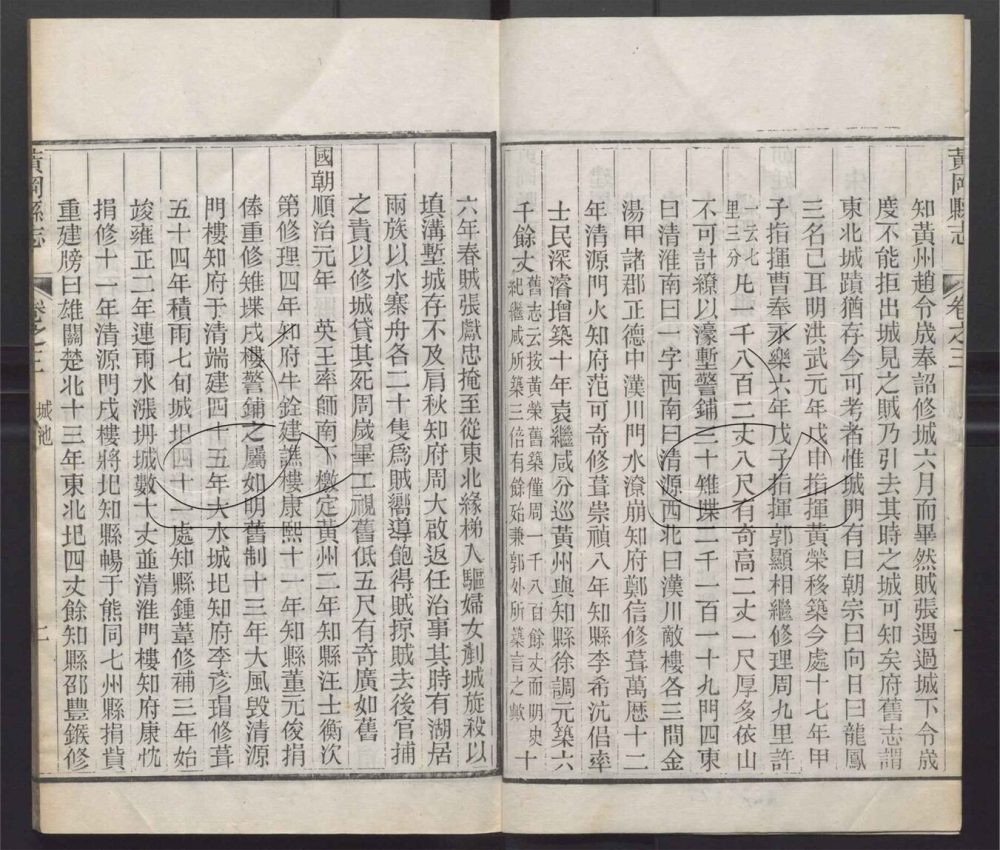 黃岡縣志
卷之三
一
知黃州趙令成奉詔修城六月而畢然賊張遇過城下令成
度不能拒出城見之賊乃引去其時之城可知矣府舊志謂
東北城蹟猶存今可考者惟城門有曰朝宗曰向日曰龍鳳
三名已耳明洪武元年戊申指揮黃榮移築今處十七年甲
子指揮曹奉永樂六年戊子指揮郭顯相繼修理周九里許
一云七里三分凡連一千八百二丈八尺有奇高二丈一尺厚多依山
不可計繚以濠塹警鋪三十雉堞二千一百一十九門四東
曰清淮南曰一字西南曰清源西北曰漢川敵樓各三間金
湯甲諸郡正德中漢川門水潦崩知府鄭信修葺萬曆十二
年清源門火知府范可奇修葺崇禎八年知縣李希沆倡率
士民深濬增築十年袁繼咸分巡黃州與知縣徐調元築六
千餘丈舊志云按黃榮舊築僅周一千八百餘丈而明史紀繼咸所築三倍有餘殆兼郭外所築言之歟十
六年春賊張獻忠掩至從東北緣梯入驅婦女剗城旋殺以
填溝塹城存不及肩秋知府周大啟返任治事其時有湖居
兩族以水寨舟各二十隻爲賊嚮導飽得賊掠賊去後官捕
之責以修城貸其死周歲畢工視舊低五尺有奇廣如舊
國朝順治元年 英王率師南下檄定黃州二年知縣汪士衡次
第修理四年知府牛銓建譙樓康熙十一年知縣董元俊捐
俸重修雉堞戌樓警鋪之屬如明舊制十三年大風毀清源
門樓知府于清端建四十五年大水城圮知府李彥瑁修葺
五十四年積雨七旬城坍四十一處知縣鍾葦修補三年始
竣雍正二年連雨水漲坍城數十丈並清淮門樓知府康忱
捐修十一年清源門戌樓將圮知縣暢于熊同七州縣捐貲
重建牓曰雄關楚北十三年東北圮四丈餘知縣邵豐鍭修
黃岡縣志
卷之三
城池
二